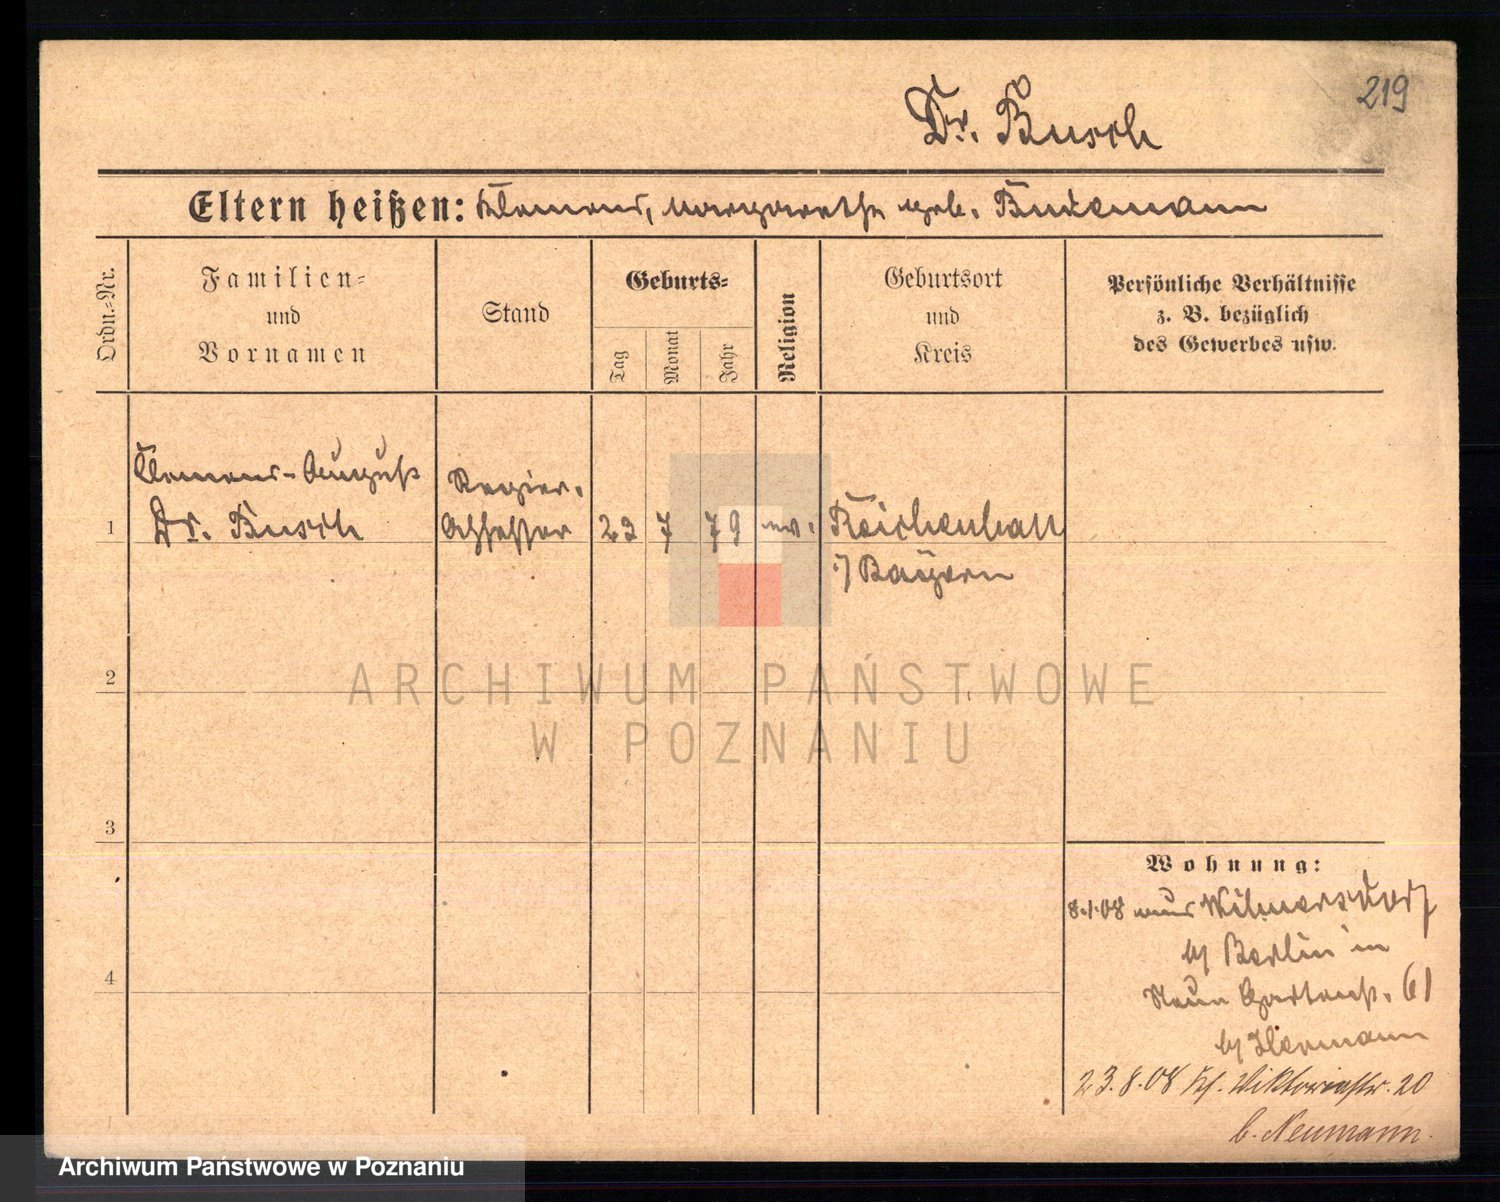 219
Dr. Busch
Eltern heißen: Klemens, Margarethe geb.
Ordn.-Nr.
Familien-
und
Vornamen
Stand
Geburts-
Tag
Monat
Jahr
Religion
Geburtsort
und
Kreis
Persönliche Verhältnisse
z. B. bezüglich
des Gewerbes usw.
Clemens-August
Dr. Busch
Regier.
Assessor
1
23
7
79
ev.
Reichenhall
i/ Bayern
2
3
4
Wohnung:
8.1.08 aus Wilmersdorf
b/ Berlin in
Neue Gartenstr. 61
b/ Hermann
23.8.08 Viktoriastr. 20
b. Neumann.
ARCHIWUM PAŃSTWOWE
W POZNANIU
Archiwum Państwowe w Poznaniu